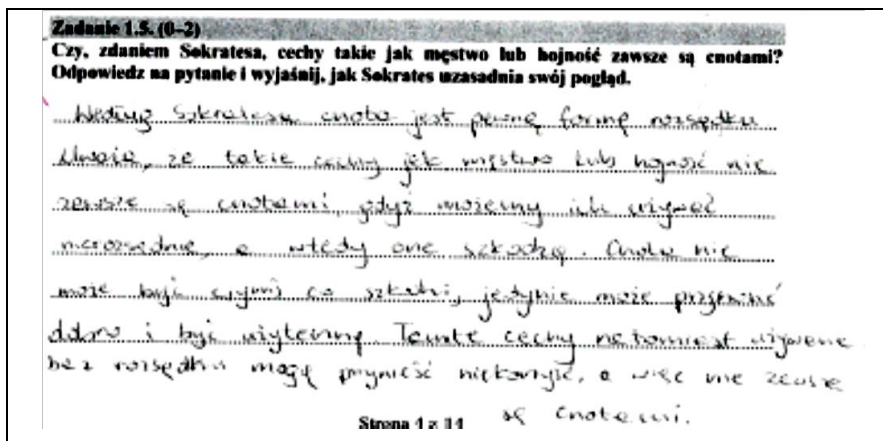 Zadanie 1.5. (0–2)
Czy, zdaniem Sokratesa, cechy takie jak męstwo lub hojność zawsze są cnotami?
Odpowiedz na pytanie i wyjaśnij, jak Sokrates uzasadnia swój pogląd.
Według Sokratesa cnota jest pewną formą rozsądku
Uważa, że takie cechy jak męstwo lub hojność nie
zawsze są cnotami, gdyż możemy ich używać
nierozsądnie, a wtedy one szkodzą. Cnota nie
może być czymś co szkodzi, jedynie może przynosić
dobro i być użyteczną. Tamte cechy natomiast używane
bez rozsądku mogą przynieść niekorzyść, a więc nie zawsze
są cnotami.
Strona 4 z 14